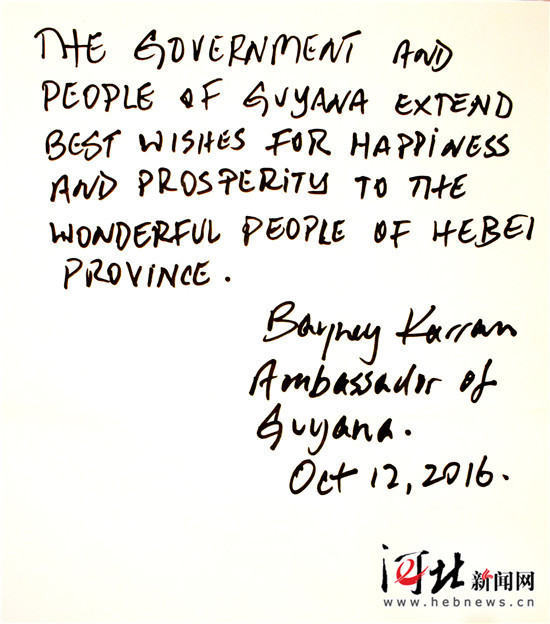 THE GOVERNMENT AND
PEOPLE OF GUYANA EXTEND
BEST WISHES FOR HAPPINESS
AND PROSPERITY TO THE
WONDERFUL PEOPLE OF HEBEI
PROVINCE.
Bayney Karran
Ambassador of
Guyana.
Oct 12, 2016.
河北新闻网
www.hebnews.cn